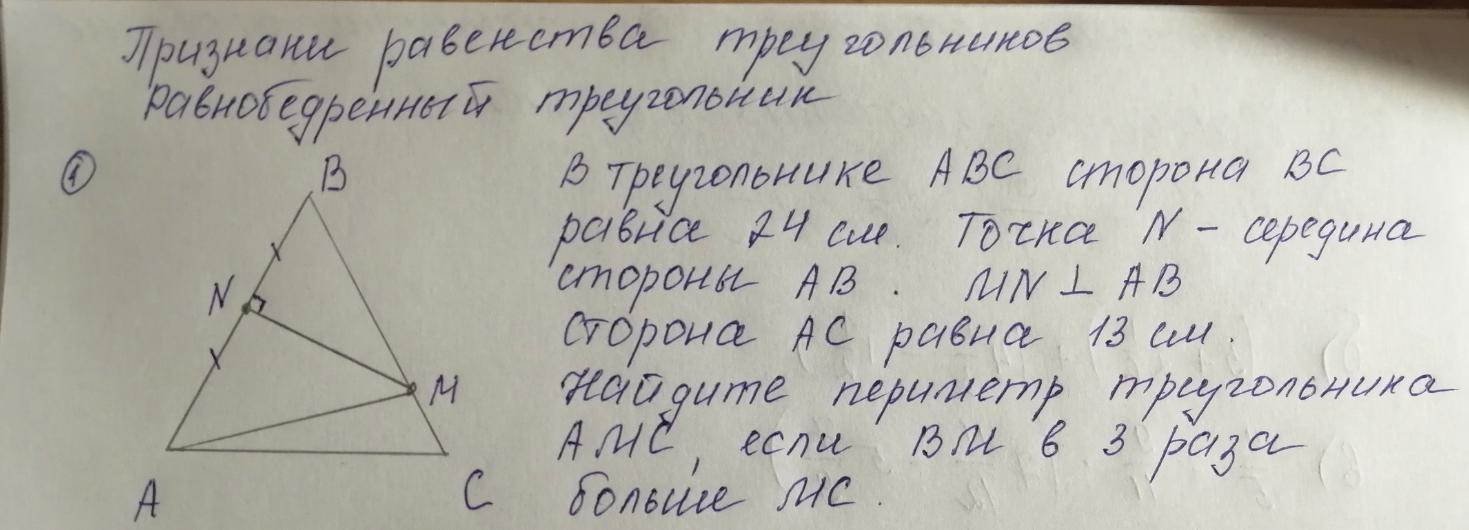 Признаки равенства треугольников
Равнобедренный треугольник
1
В треугольнике ABC сторона BC
равна 24 см. Точка N - середина
стороны AB. MN ⊥ AB
Сторона AC равна 13 см.
Найдите периметр треугольника
AMC, если BM в 3 раза
больше MC.
B
N
M
A
C